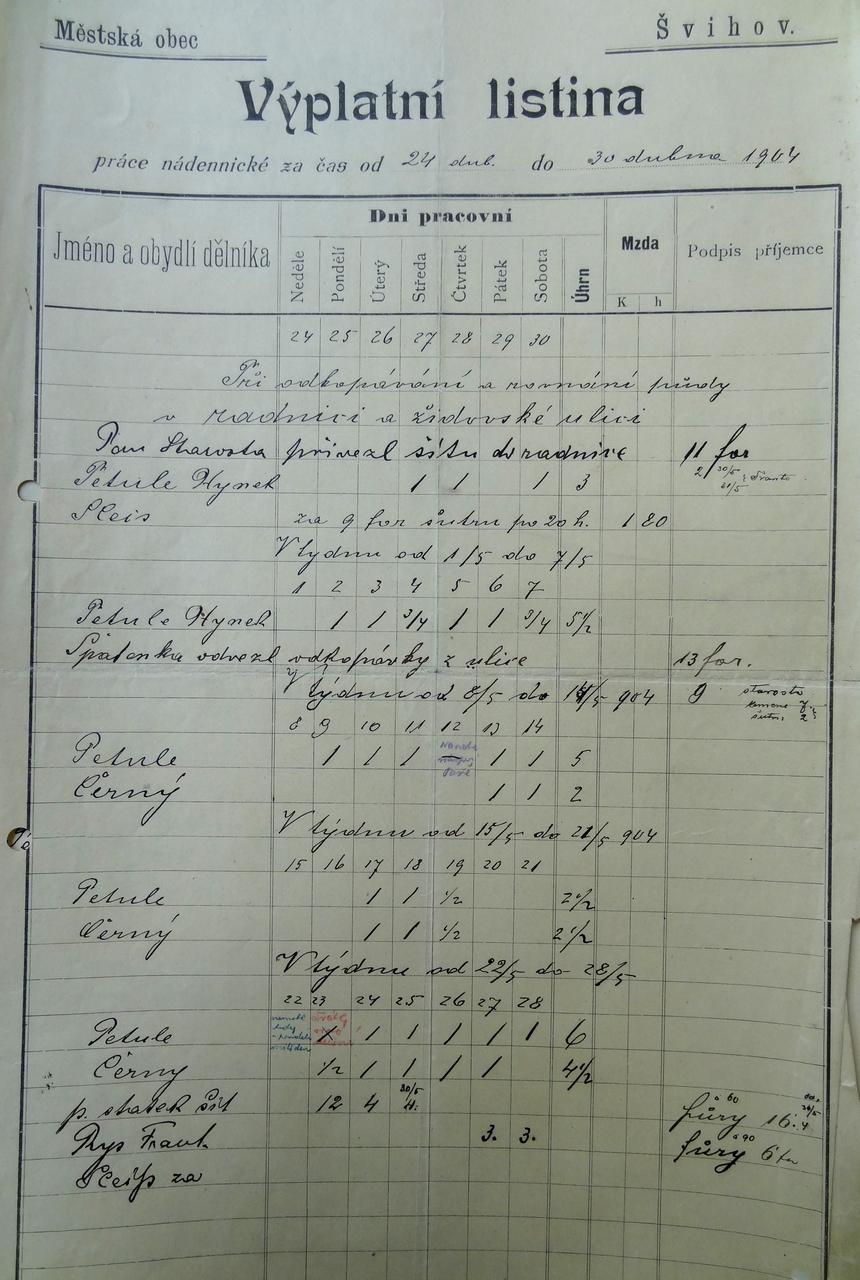 Městská obec
Švihov.
Výplatní listina
práce nádennické za čas od 24 dub. do 30 dubna 1904
Jméno a obydlí dělníka
Dni pracovní
Neděle Pondělí Úterý Středa Čtvrtek Pátek Sobota Úhrn
Mzda
K h
Podpis příjemce
24 25 26 27 28 29 30
Při odkopávání a rovnání půdy
v radnici a židovské ulici
Pan Starosta přivezl šítu do radnice 11 for
Petule Hynek 1 1 1 3
Sleis za 9 for šutru po 20 h. 1 80
V týdnu od 1/5 do 7/5
1 2 3 4 5 6 7
Petule Hynek 1 1 3/4 1 1 3/4 5 1/2
Špátenka odvezl odkopávky z ulice 13 for.
V týdnu od 8/5 do 14/5 904 9 starosta
8 9 10 11 12 13 14
Petule 1 1 1 1 1 5
Černý 1 1 2
V týdnu od 15/5 do 21/5 904
15 16 17 18 19 20 21
Petule 1 1 1/2 2 1/2
Černý 1 1 1/2 2 1/2
V týdnu od 22/5 do 28/5
22 23 24 25 26 27 28
Petule X 1 1 1 1 1 6
Černy 1/2 1 1 1 1 4 1/2
p. statek Šít 12 4 30/5 4. fůry à 60 16.
Rys Frant. 3. 3. fůry à 90 6
Sleiss za